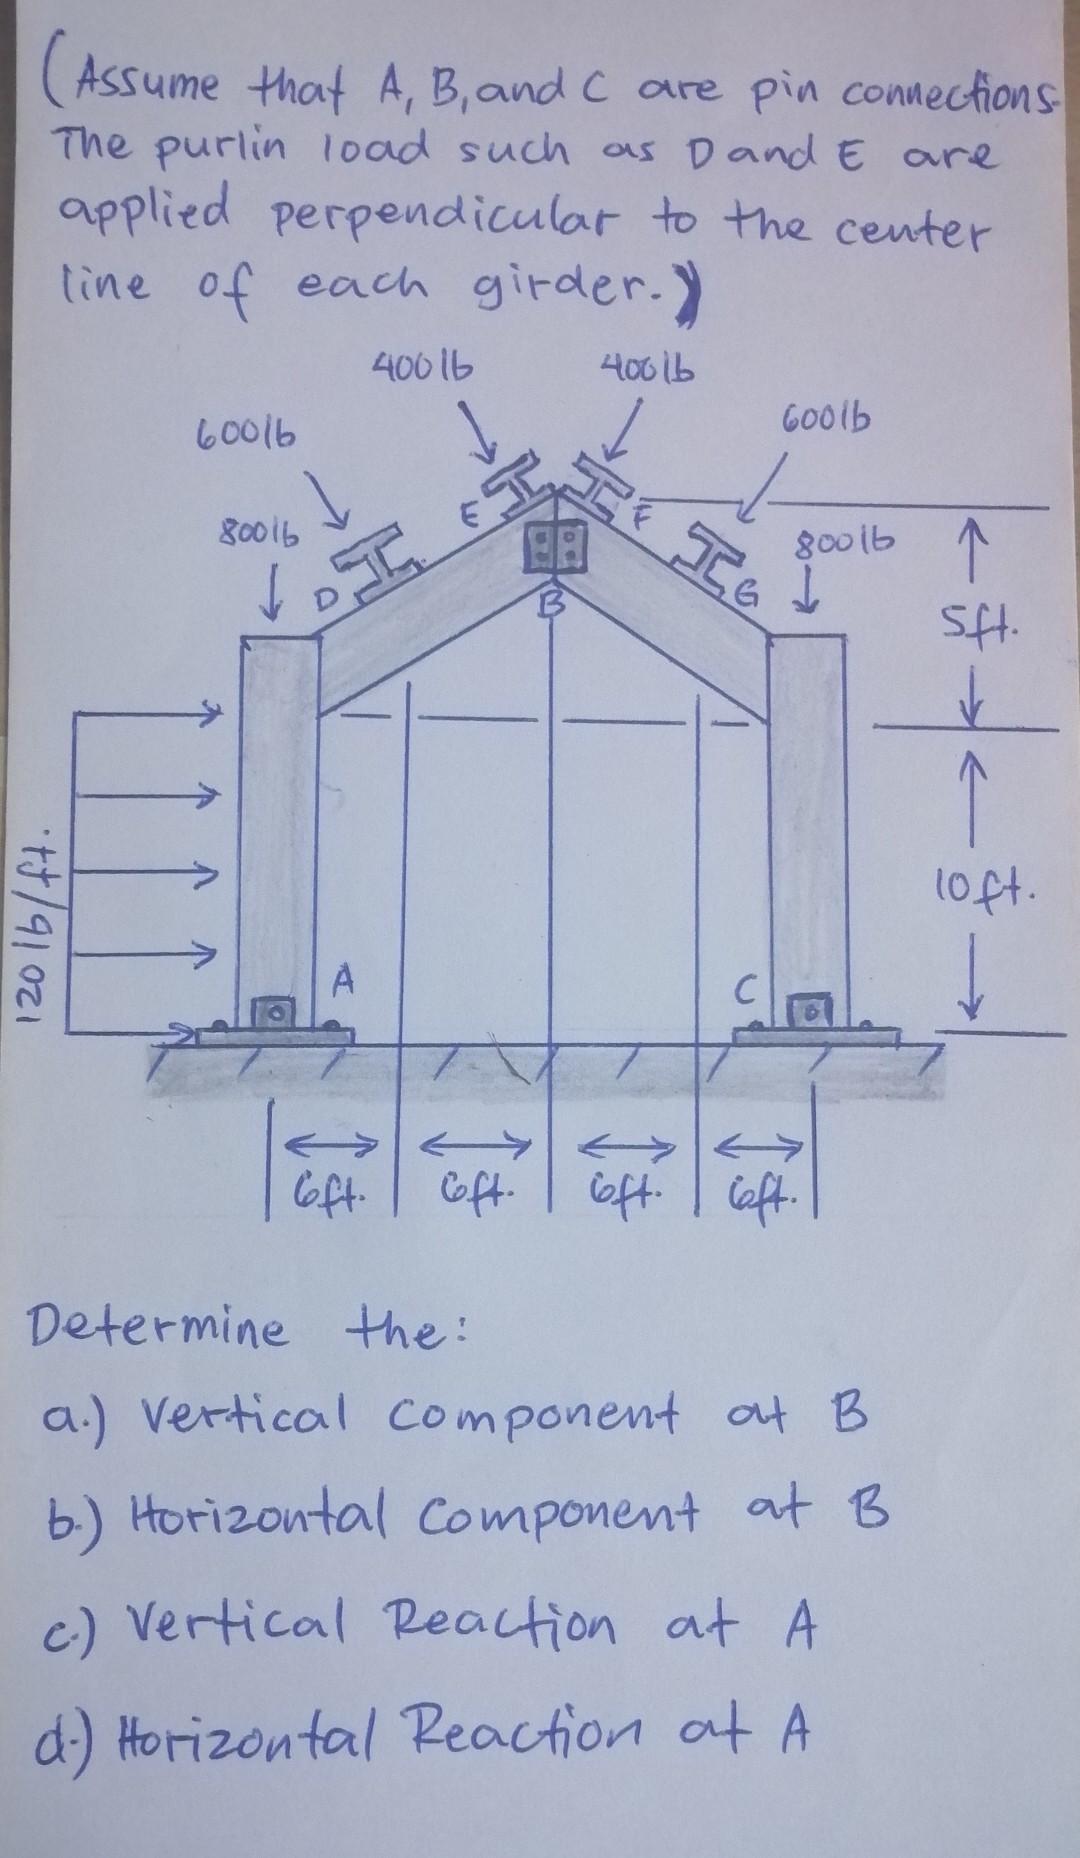 (Assume that A, B, and C are pin connections.
The purlin load such as D and E are
applied perpendicular to the center
line of each girder.)
400 lb
400 lb
600 lb
600 lb
E
F
800 lb
800 lb
D
B
G
5ft.
120 lb/ft.
10ft.
A
C
6ft.
6ft.
6ft.
6ft.
Determine the:
a.) Vertical Component at B
b.) Horizontal Component at B
c.) Vertical Reaction at A
d.) Horizontal Reaction at A